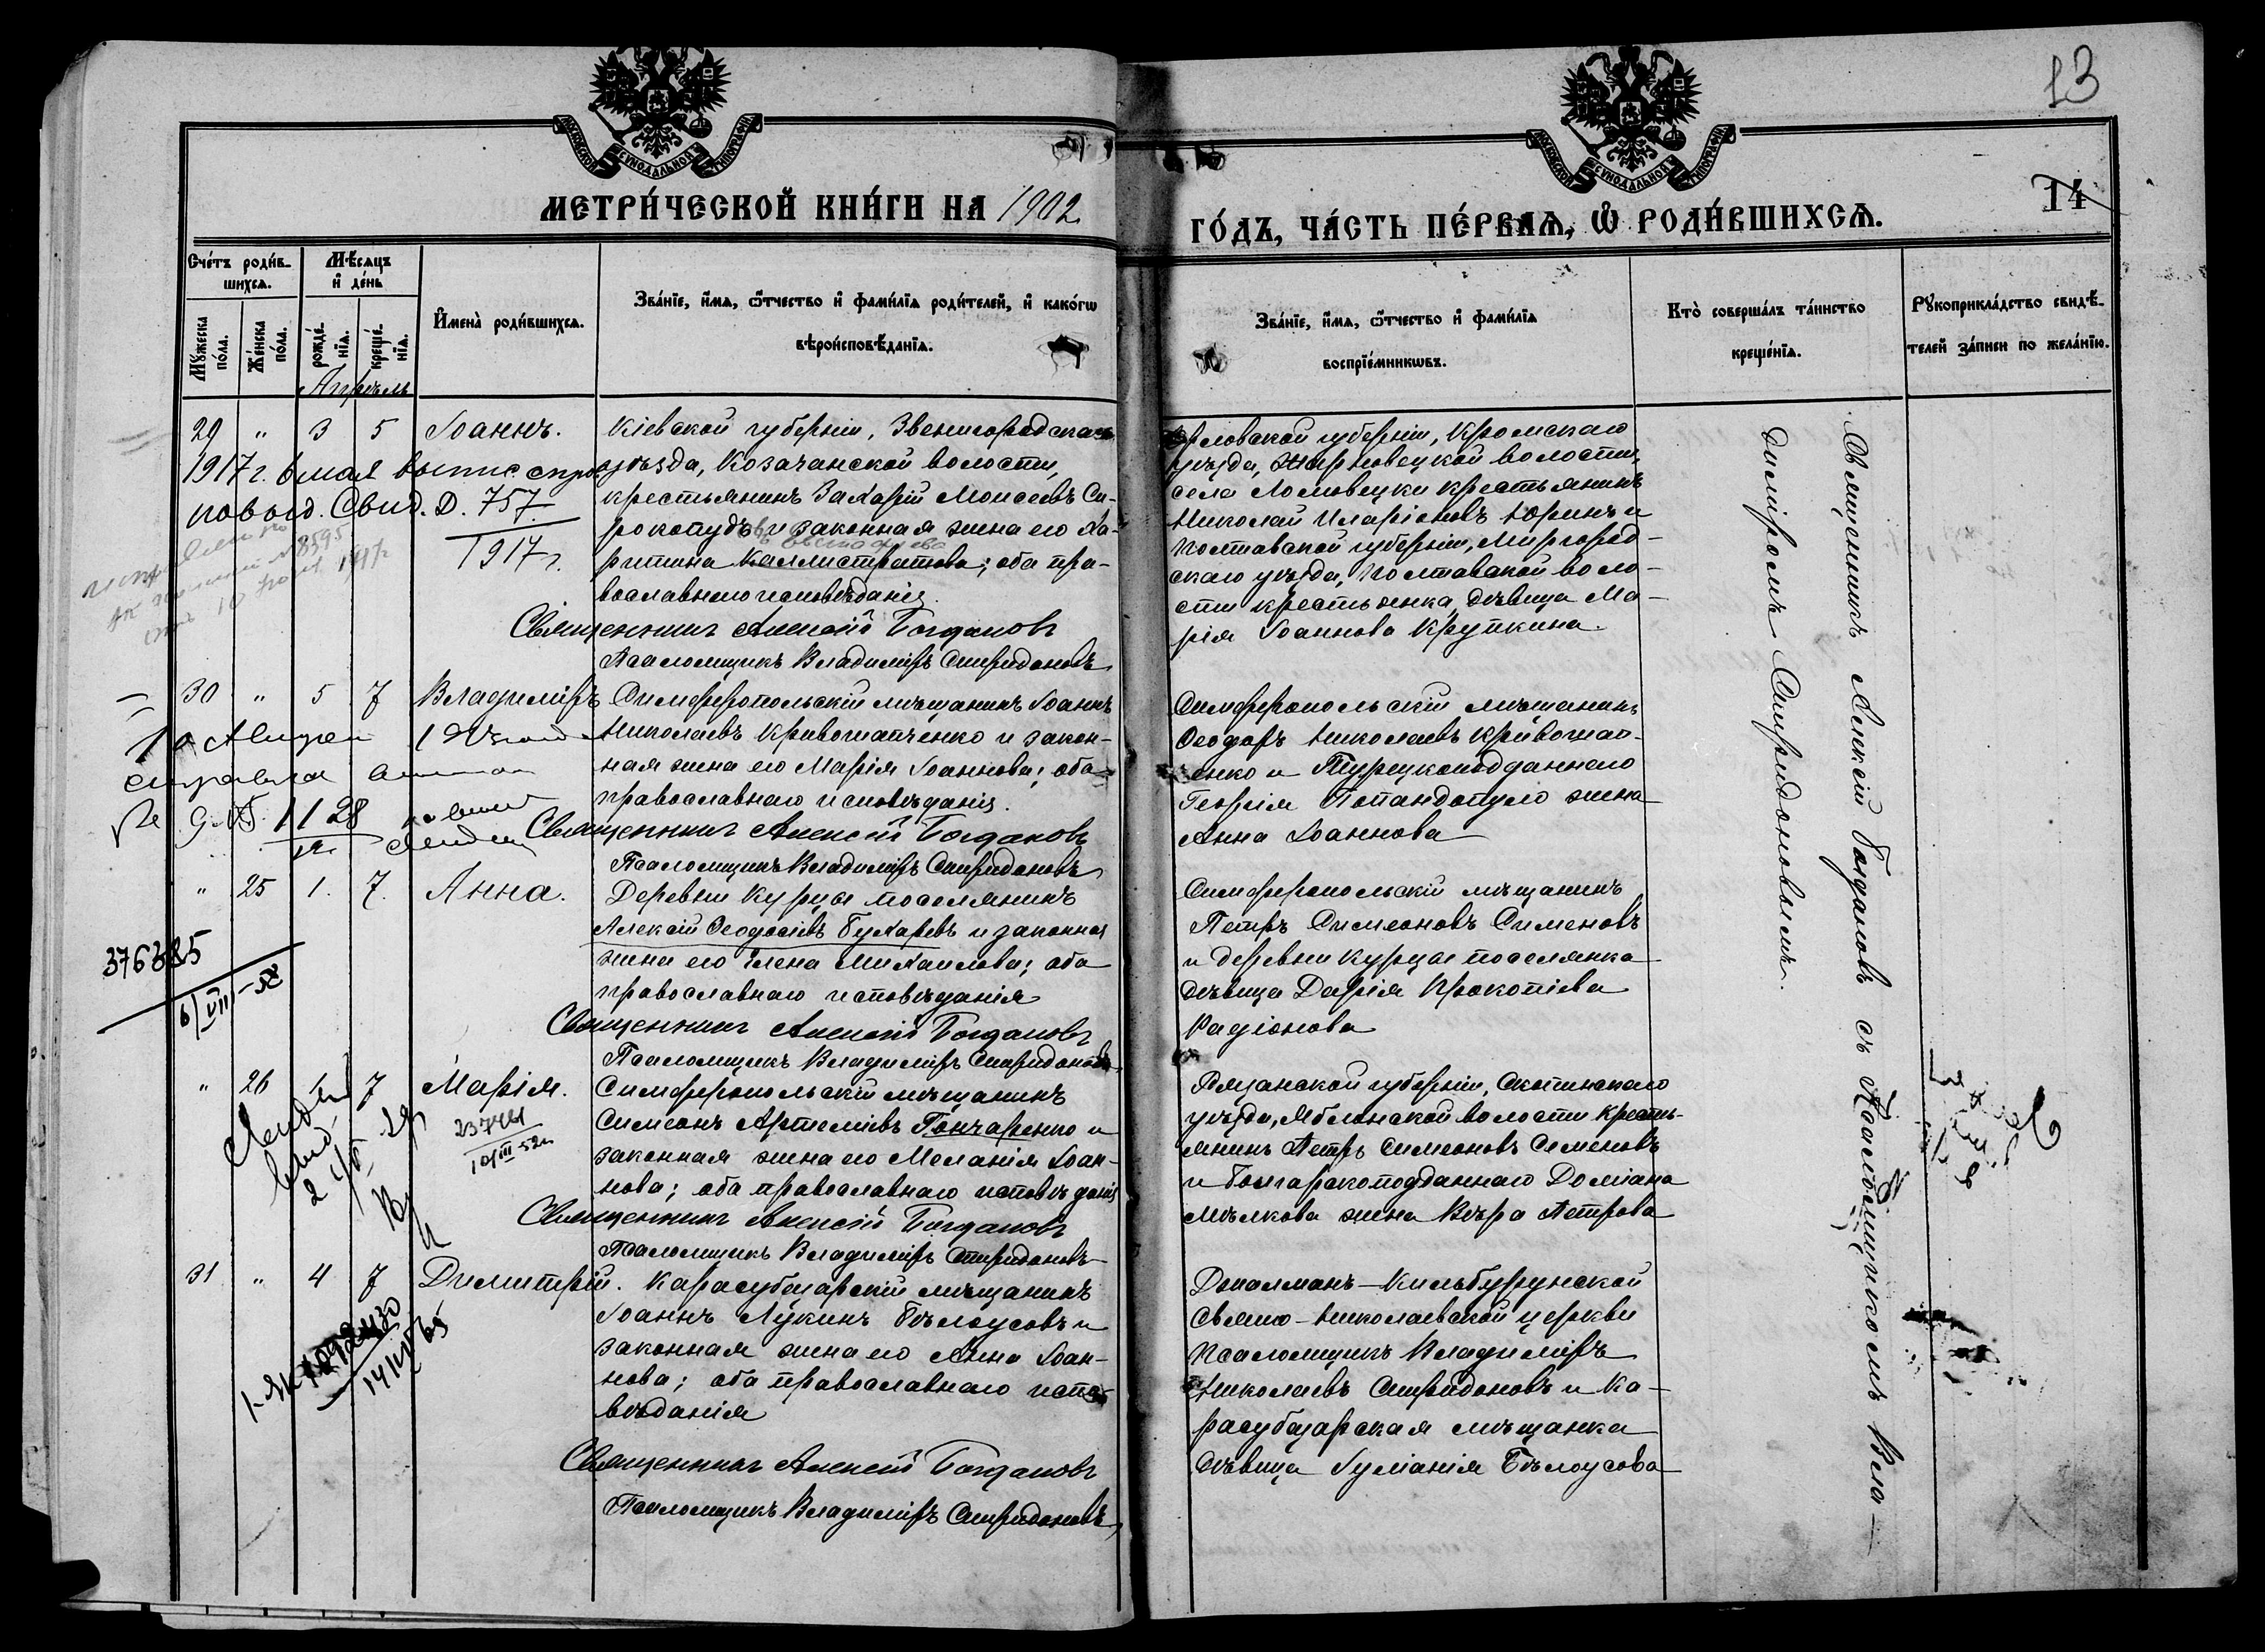 13
МОСКОВСКОЙ СѴНОДАЛЬНОЙ ТИПОГРАФІИ
МОСКОВСКОЙ СѴНОДАЛЬНОЙ ТИПОГРАФІИ
МЕТРИ́ЧЕСКОЙ КНИ́ГИ НА 1902
ГО́ДЪ, ЧА́СТЬ ПЕ́РВАѦ, Ѽ РОДИ́ВШИХСѦ.
14
Сче́тъ роди́в-
шихсѧ.
Мꙋ́жеска
по́ла.
Же́нска
по́ла.
Мѣ́сяцъ
и҆ де́нь
рожде́-
нїѧ.
креще́-
нїѧ.
И҆мена̀ роди́вшихсѧ.
Зва́нїе, и҆́мѧ, ѻ҆́тчество и҆ фами́лїѧ роди́телей, и҆ како́гѡ
вѣроисповѣ́данїѧ.
Зва́нїе, и҆́мѧ, ѻ҆́тчество и҆ фами́лїѧ
воспрїе́мникѡвъ.
Кто̀ соверша́лъ та́инство
креще́нїѧ.
Рꙋкоприкла́дство свидѣ́-
телей за́писи по жела́нїю.
Апрѣль
29 " 3 5 Іоаннъ.
Кіевской губерніи, Звенигородскаго
уѣзда, Козачанской волости,
крестьянинъ Захарій Моисеевъ Си-
рокопудъ и законная жена его Ха-
ритина Каллистратова; оба пра-
вославнаго исповѣданія.
Священникъ Алексій Богдановъ
Псаломщикъ Владиміръ Спиридоновъ
Орловской губерніи, Кромскаго
уѣзда,
села Ломовецки крестьянинъ
Николай Иларіоновъ Юринъ и
Полтавской губерніи, Миргород-
скаго уѣзда, Полтавской воло-
сти крестьянка, дѣвица Ма-
рія Іоаннова Крупкина.
1917 г. 6 мая выпис. справ.
Свид. Д. 757.
1917 г.
№ 8595
30 " 5 7 Владиміръ
Симферопольскій мѣщанинъ Іоаннъ
Николаевъ Кривошапченко и закон-
ная жена его Марія Іоаннова; оба
православнаго исповѣданія.
Священникъ Алексій Богдановъ
Псаломщикъ Владиміръ Спиридоновъ
Симферопольскій мѣщанинъ
Ѳеодоръ Николаевъ Кривошап-
ченко и Турецкоподданнаго
Георгія Попандопуло жена
Анна Іоаннова
" 25 1. 7. Анна.
Деревни Курцы поселянинъ
Алексій Ѳеодосіевъ Бухаревъ и законная
жена его Елена Михаилова; оба
православнаго исповѣданія
Священникъ Алексій Богдановъ
Псаломщикъ Владиміръ Спиридоновъ
Симферопольскій мѣщанинъ
Петръ Симеоновъ Сименовъ
и деревни Курцы поселянка
дѣвица Дарія Прокопіева
Радіонова
6/VIII-52
" 26 1 7 Марія.
Симферопольскій мѣщанинъ
Симеонъ Артеміевъ Гончаренко и
законная жена его Меланія Іоан-
нова; оба православнаго исповѣданія
Священникъ Алексій Богдановъ
Псаломщикъ Владиміръ Спиридоновъ
Рязанской губерніи, Скопинскаго
уѣзда, Яблонской волости кресть-
янинъ Петръ Симеоновъ Семеновъ
и Болгарскоподданнаго Доміана
Мѣлкова жена Вѣра Петрова
10/III-52г
31 " 4 7 Димитрій.
Карасубазарскій мѣщанинъ
Іоаннъ Лукинъ Бѣлоусовъ и
законная жена его Анна Іоан-
нова; оба православнаго испо-
вѣданія
Священникъ Алексій Богдановъ
Псаломщикъ Владиміръ Спиридоновъ
Джалманъ-Кильбурунской
Свято-Николаевской церкви
Псаломщикъ Владиміръ
Николаевъ Спиридоновъ и Ка-
расубазарская мѣщанка
дѣвица Іуліанія Бѣлоусова
Священникъ Алексій Богдановъ съ Псаломщикомъ Вла-
диміромъ Спиридоновымъ.